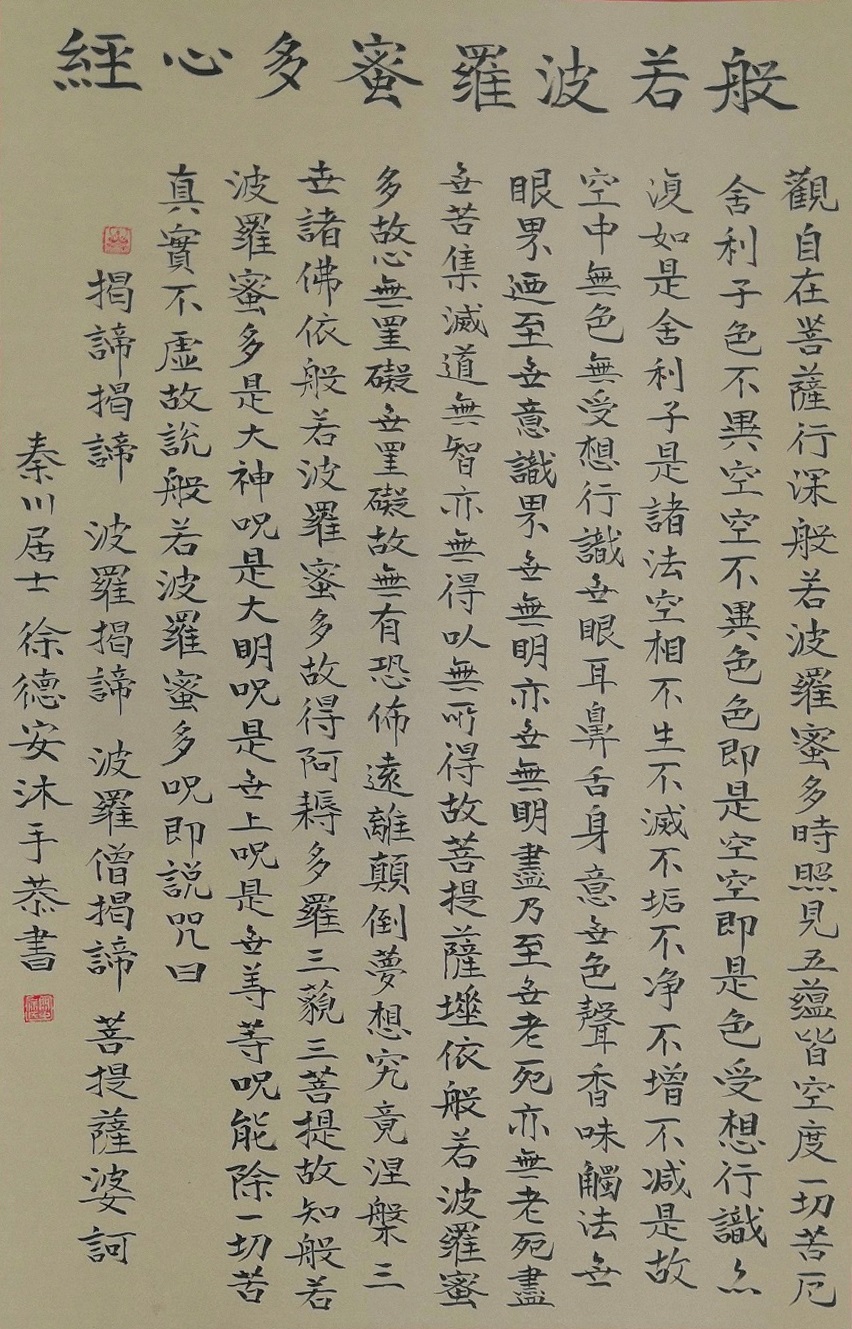 般若波羅蜜多心經
觀自在菩薩行深般若波羅蜜多時照見五蘊皆空度一切苦厄
舍利子色不異空空不異色色即是空空即是色受想行識亦
復如是舍利子是諸法空相不生不滅不垢不净不增不减是故
空中無色無受想行識无眼耳鼻舌身意无色聲香味觸法无
眼界迺至无意識界无無明亦无無明盡乃至无老死亦無老死盡
无苦集滅道無智亦無得以無所得故菩提薩埵依般若波羅蜜
多故心無罣礙无罣礙故無有恐怖遠離顛倒夢想究竟涅槃三
世諸佛依般若波羅蜜多故得阿耨多羅三藐三菩提故知般若
波羅蜜多是大神呪是大明呪是无上呪是无等等呪能除一切苦
真實不虛故說般若波羅蜜多呪即説咒曰
揭諦揭諦 波羅揭諦 波羅僧揭諦 菩提薩婆訶
秦川居士徐德安沐手恭書